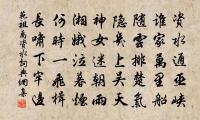 資水通巫峡
誰家萬里船
隨雲排楚氣
隱幾上吳天
神女迷朝雨
湘娥泣暮煙
何時一飛楫
長嘯下牢邊
范祖禹資水詞典網集